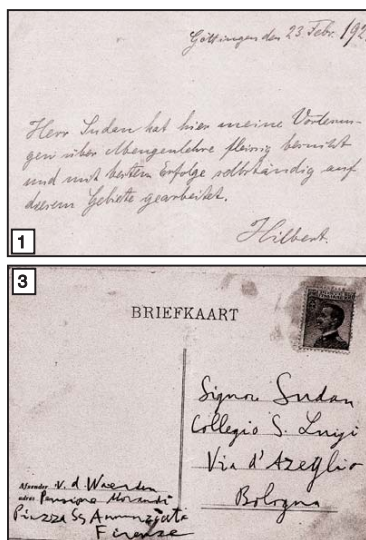 Göttingen den 23 Febr. 192
Herr Sudan hat hier meine Vorlesun-
gen über Mengenlehre fleissig benutzt
und mit bestem Erfolge selbständig auf
diesem Gebiete gearbeitet.
Hilbert.
1
3
BRIEFKAART
Signor Sudan
Collegio S. Luigi
Via d'Azeglio
Bologna
Afzender v. d. Waerden
adres Pensione Morandi
Piazza SS Annunziata
Firenze